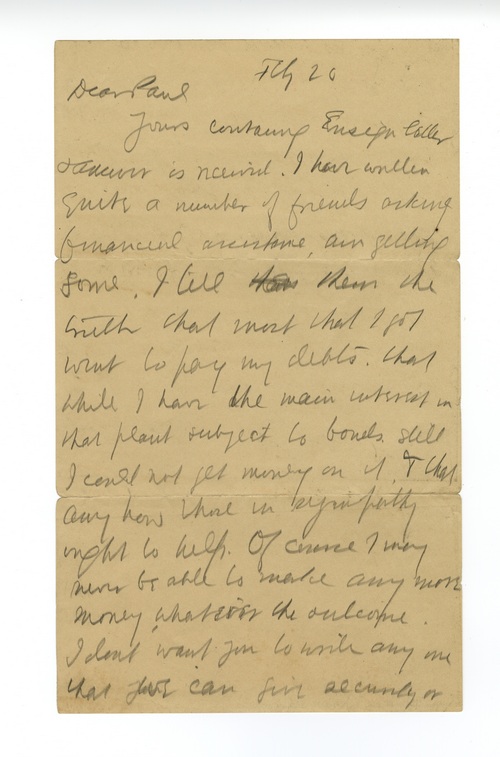 Feb 20
Dear Paul
Yours containing Ensign letter
& answer is received. I have written
quite a number of friends asking
financial assistance, am getting
some. I tell them the
truth that most that I got
went to pay my debts. that
while I have the main interest in
that plant subject to bonds still
I could not get money on it. & that
any how those in sympathy
ought to help. Of course I may
never be able to make any more
money whatever the outcome.
I dont want you to write any one
that you can give security or